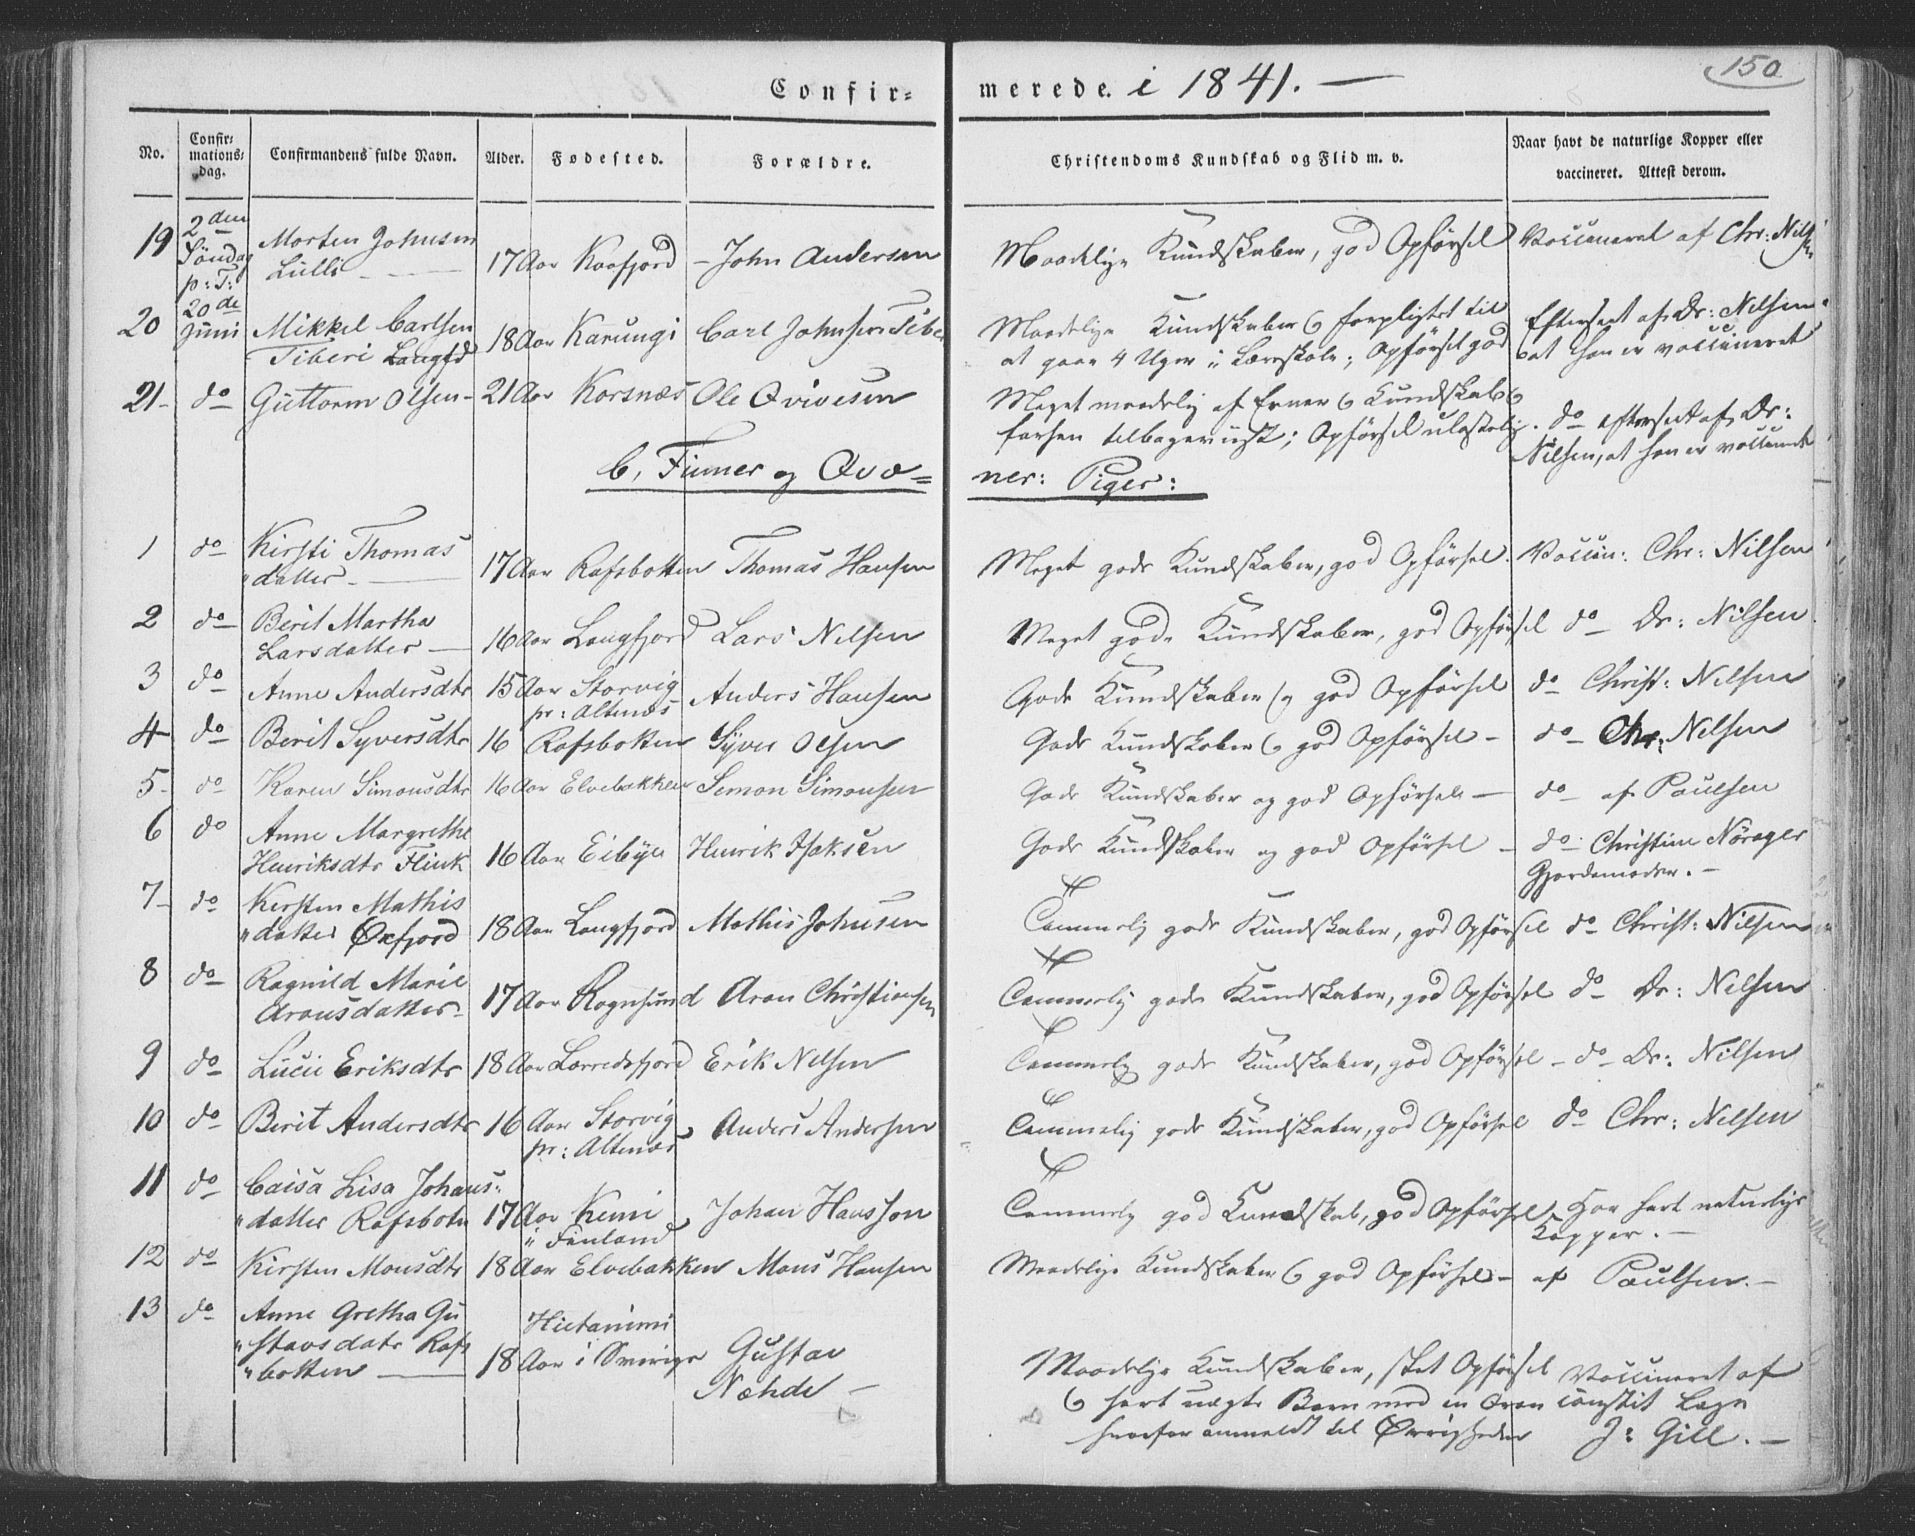 150
Confir= merede. i 1841. —
No. Confir= mations= dag. Confirmandens fulde Navn. Alder. Fødested. Forældre. Christendoms Kundskab og Flid m. v. Naar havt de naturlige Kopper eller vaccineret. Attest derom.
19 2den Søndag p: T: Morten Johnsen Lulli — 17 Aar Kaafjord — John Andersen Maadelige Kundskaber, god Opførsel Vaccineret af Chr: Nilsen
20 20de Juni Mikkel Carlsen Tiberi Langfd 18 Aar Karungi Carl Johnsen Maadelige Kundskaber og forpligtet til
at gaae 4 Uger i Læseskole; Opførsel god Efterseet af Dr: Nilsen at han er vaccineret
21- do Guttorm Olsen- 21 Aar Korsnæs Ole Qvivesen Meget maadelig af Evner og Kundskab og
forhen tilbageviist; Opførsel ulastelig. do efterseet af Dr:
Nilsen, at han er vaccineret
b, Finner og Qvæ= ner: Piger:
1 do Kirsti Thomas
"datter — 17 Aar Rafsbotten Thomas Hansen Meget gode Kundskaber, god Opførsel. Vaccin: Chr: Nilsen
2 do Berit Martha
Larsdatter — 16 Aar Langfjord Lars Nilsen Meget gode Kundskaber, god Opførsel do Dr: Nilsen
3 do Anne Andersdtr 15 Aar Storvig
pr: Altenæs Anders Hansen Gode Kundskaber og god Opførsel do Christ: Nilsen
4 do Berit Syversdtr 16 Rafsbotten Syver Olsen Gode Kundskaber og god Opførsel — do Chr: Nilsen
5- do Karen Simonsdtr 16 Aar Elvebakken Simon Simonsen Gode Kundskaber og god Opførsel — do af Paulsen
6 do Anne Margrethe
Henriksdtr Flink 16 Aar Eibye Henrik Isaksen Gode Kundskaber og god Opførsel — do Christine Norager
Gjordemoder. —
7- do Kirsten Mathis
"datter Øxfjord 18 Aar Langfjord Mathis Johnsen Temmelig gode Kundskaber, god Opførsel do Christ: Nilsen
8 do Ragnild Marie
Aronsdatter- 17 Aar Rognsund Aron Christiansen Temmelig gode Kundskaber, god Opførsel do Dr: Nilsen
9 do Lucie Eriksdtr 18 Aar Lærredsfjord Erik Nilsen Temmelig gode Kundskaber, god Opførsel — do Dr: Nilsen
10 do Berit Andersdtr 16 Aar Storvig
pr: Altenæs Anders Andersen Temmelig gode Kundskaber, god Opførsel do Chr: Nilsen
11 do Caisa Lisa Johans-
"datter Rafsbotn 17 Aar Kemi
i Finland Johan Hansson Temmelig god Kundskab, god Opførsel Har havt naturlige
Kopper. —
12 do Kirsten Monsdtr 18 Aar Elvebakken Mons Hansen Maadelige Kundskaber og god Opførsel — af Paulsen. —
13 do Anne Gretha Gu
"stavsdatr Rafs
"botten — 18 Aar Hietaniemi
i Sverige Gustav
Næhde — Maadelige Kundskaber, slet Opførsel Vaccineret af
og havt uægte Barn med en Qvæn constit Læge
hvorfor anmeldt til Øvrigheden J: Gill. —